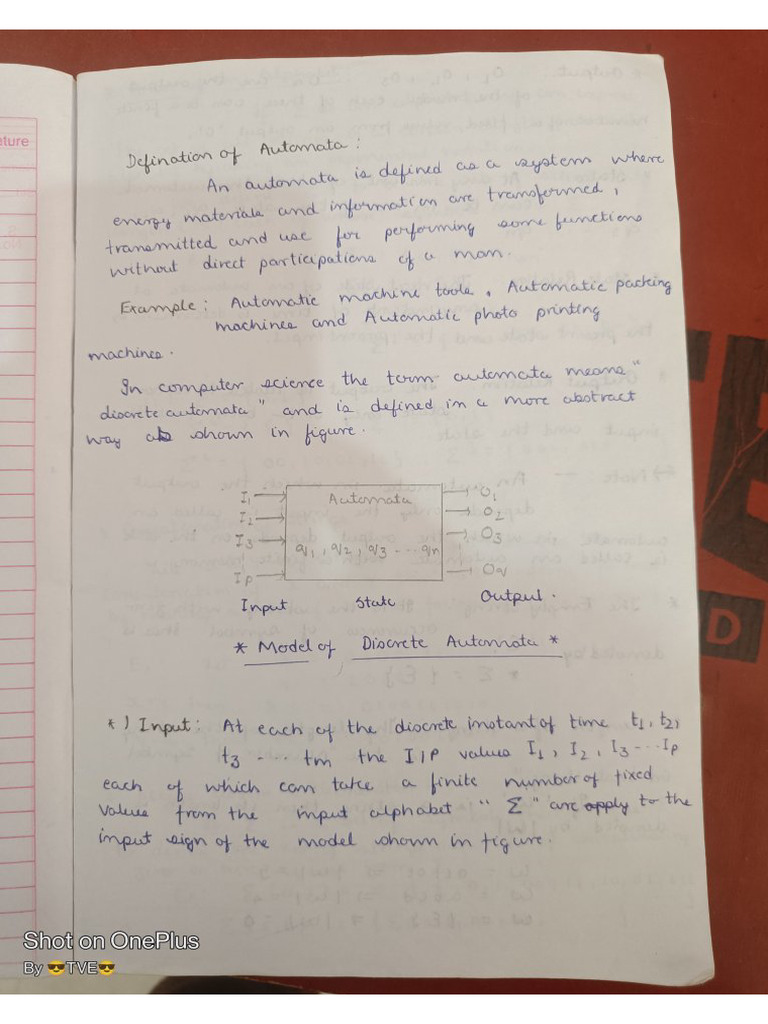 Defination of Automata :
An automata is defined as a system where
energy materials and information are transformed,
transmitted and use for performing some functions
without direct participations of a man.
Example : Automatic machine tools, Automatic packing
machines and Automatic photo printing
machines.
In computer science the term automata means "
discrete automata" and is defined in a more abstract
way as shown in figure.
I1 Automata O1
I2 O2
I3 q1, q2, q3 ... qn O3
Ip Oq
Input State Output.
* Model of Discrete Automata *
*) Input : At each of the discrete instant of time t1, t2,
t3 .... tm the I/P values I1, I2, I3 ... Ip
each of which can take a finite number of fixed
values from the input alphabet "Σ" are apply to the
input sign of the model shown in figure.
ature
D
Shot on OnePlus
By 😎TVE😎